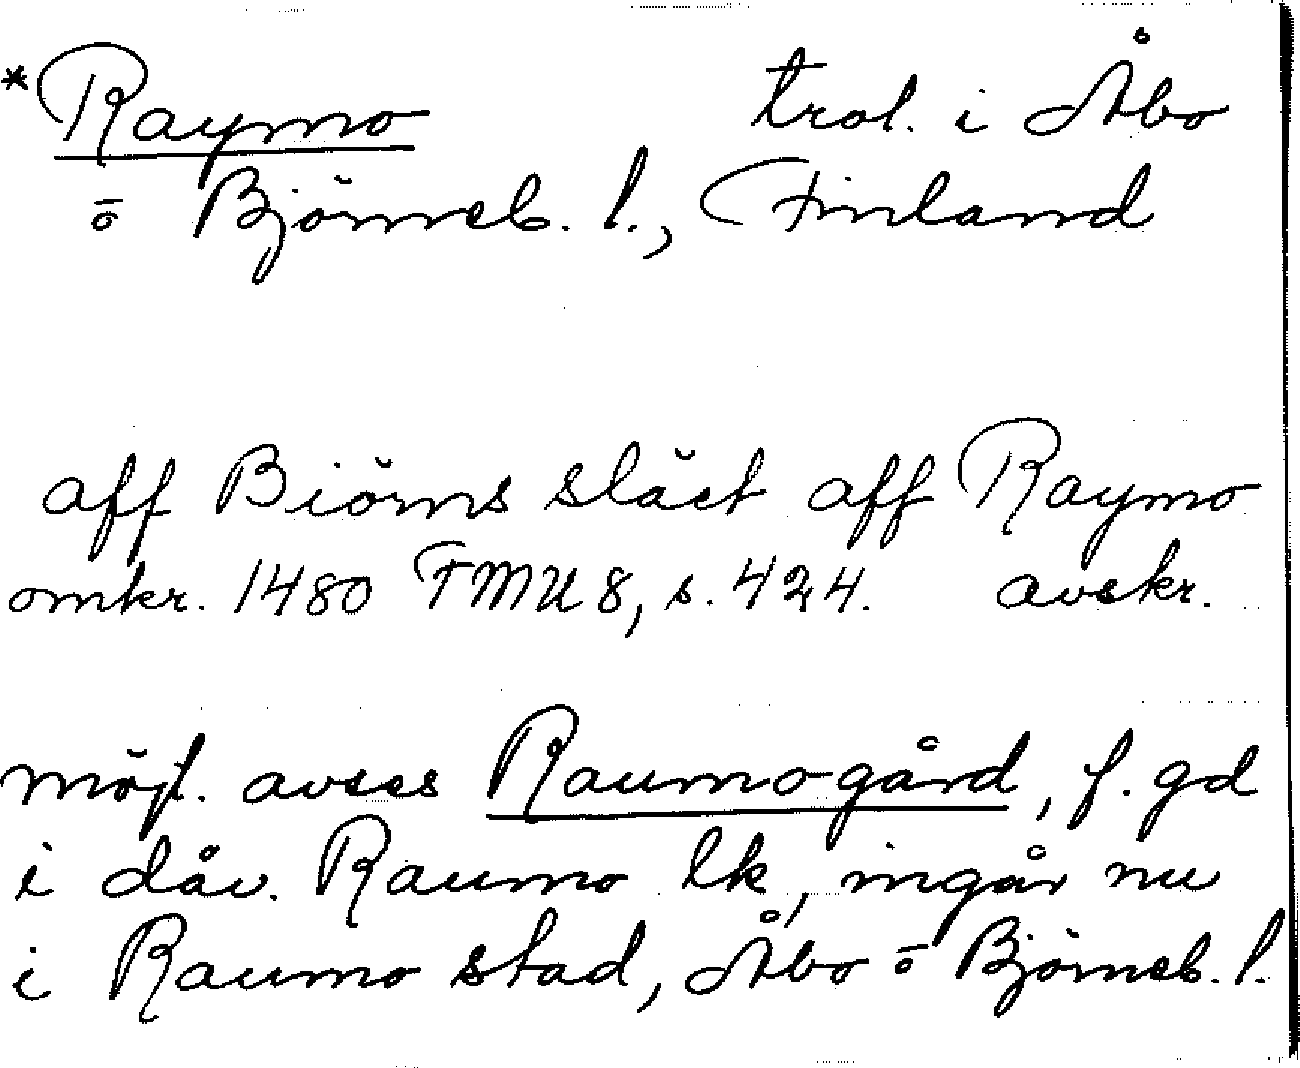 *Raymo trol. i Åbo
o Björneb. l., Finland
aff Biörns släct aff Raymo
omkr. 1480 FMU 8, s. 424. avskr.
möjl. avses Raumogård, f. gd
i dåv. Raumo lk, ingår nu
i Raumo stad, Åbo o Björneb. l.